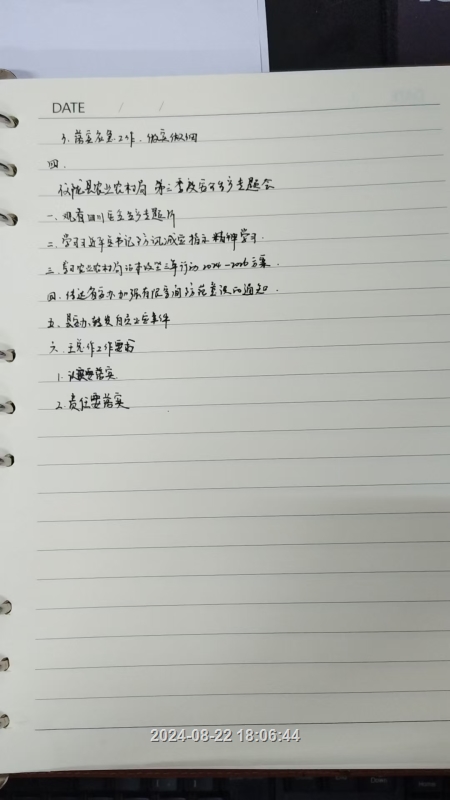 DATE / /
3. 落实应急工作，做实做细
四.
仪陇县农业农村局 第三季度安全生产专题会
一. 观看四川安全生产专题片
二. 学习习近平总书记防汛减灾指示精神学习.
三. 学习农业农村局治本攻坚三年行动2024-2026方案.
四. 传达省安办加强有限空间防范建议的通知.
五. 县安办转发自贡火灾事件
六. 主任作工作要求
1. 认识要落实
2. 责任要落实
2024-08-22 18:06:44